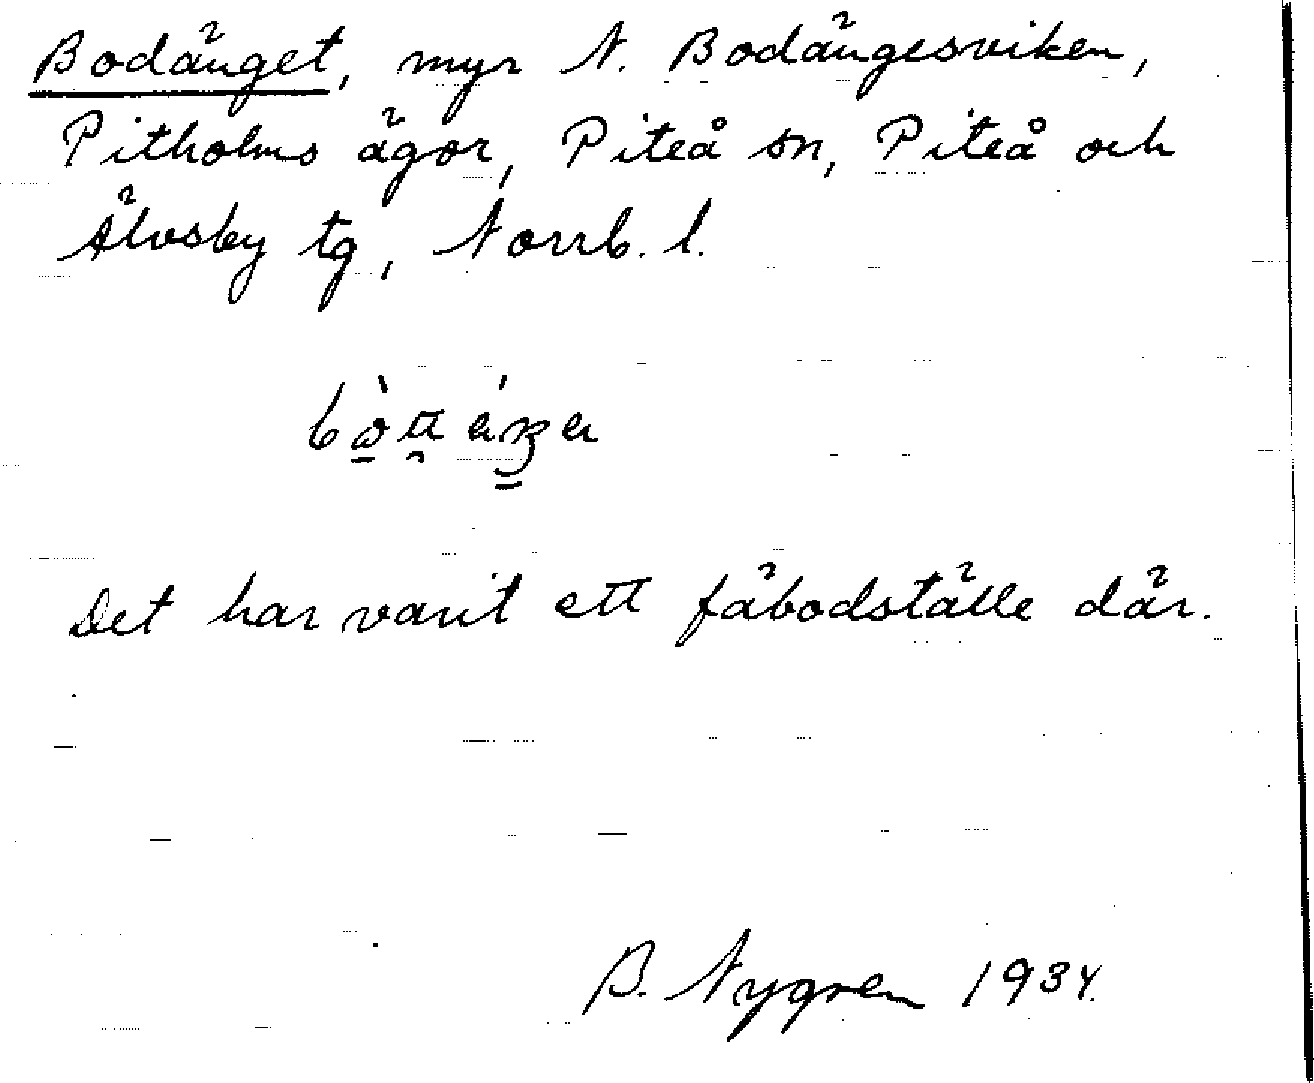 Bodänget, myr N. Bodängesviken,
Pitholms ägor, Piteå sn, Piteå och
Älvsby tg, Norrb. l.
Det har varit ett fäbodställe där.
B. Nygren 1934.